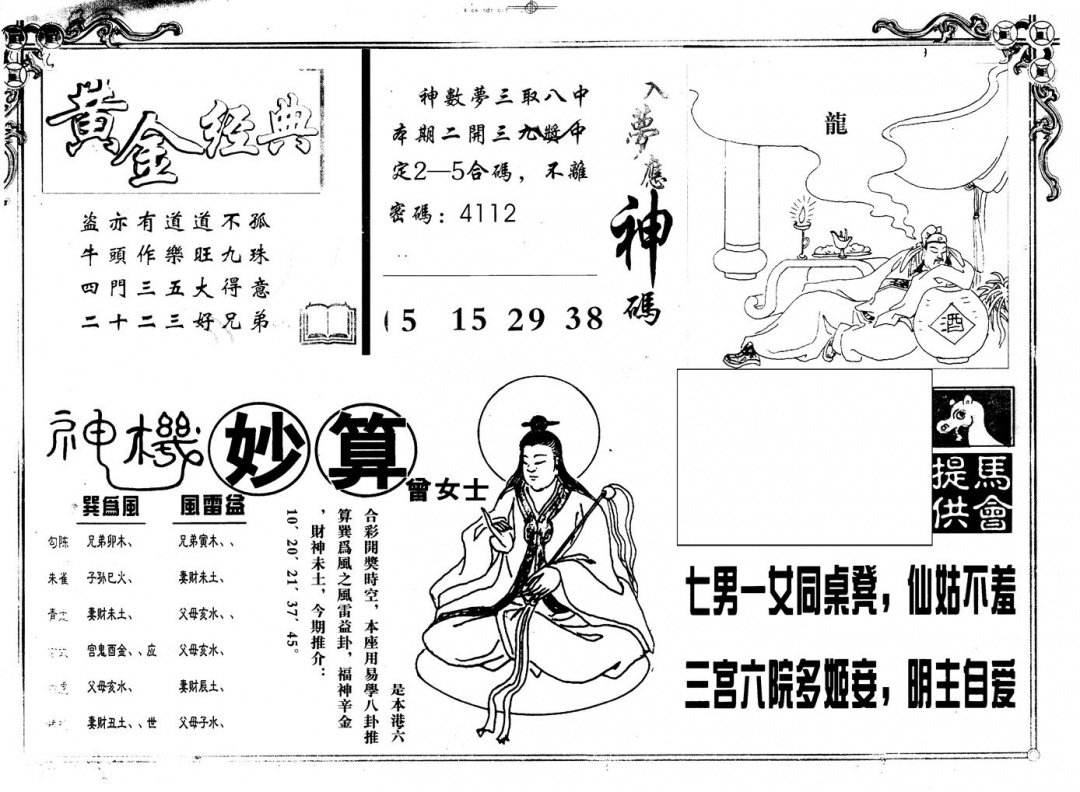 黃金經典
盜亦有道道不孤
牛頭作樂旺九珠
四門三五大得意
二十二三好兄弟
神數夢三取八中
本期二開三九獎中
定2—5合碼，不離
密碼：4112
5 15 29 38
入夢應神碼
龍
酒
神機妙算
曾女士
巽爲風 風雷益
勾陈 兄弟卯木、 兄弟寅木、、
朱雀 子孙巳火、 妻财未土、
青 妻财未土、 父母亥水、、
官鬼酉金、、应 父母亥水、
父母亥水、 妻财辰土、
妻财丑土、、世 父母子水、
是本港六
合彩開獎時空，本座用易學八卦推
算巽爲風之風雷益卦，福神辛金
，財神未土，今期推介：
10′20′21′37′45。
馬會
提供
七男一女同桌凳，仙姑不羞
三宫六院多姬妾，明主自爱